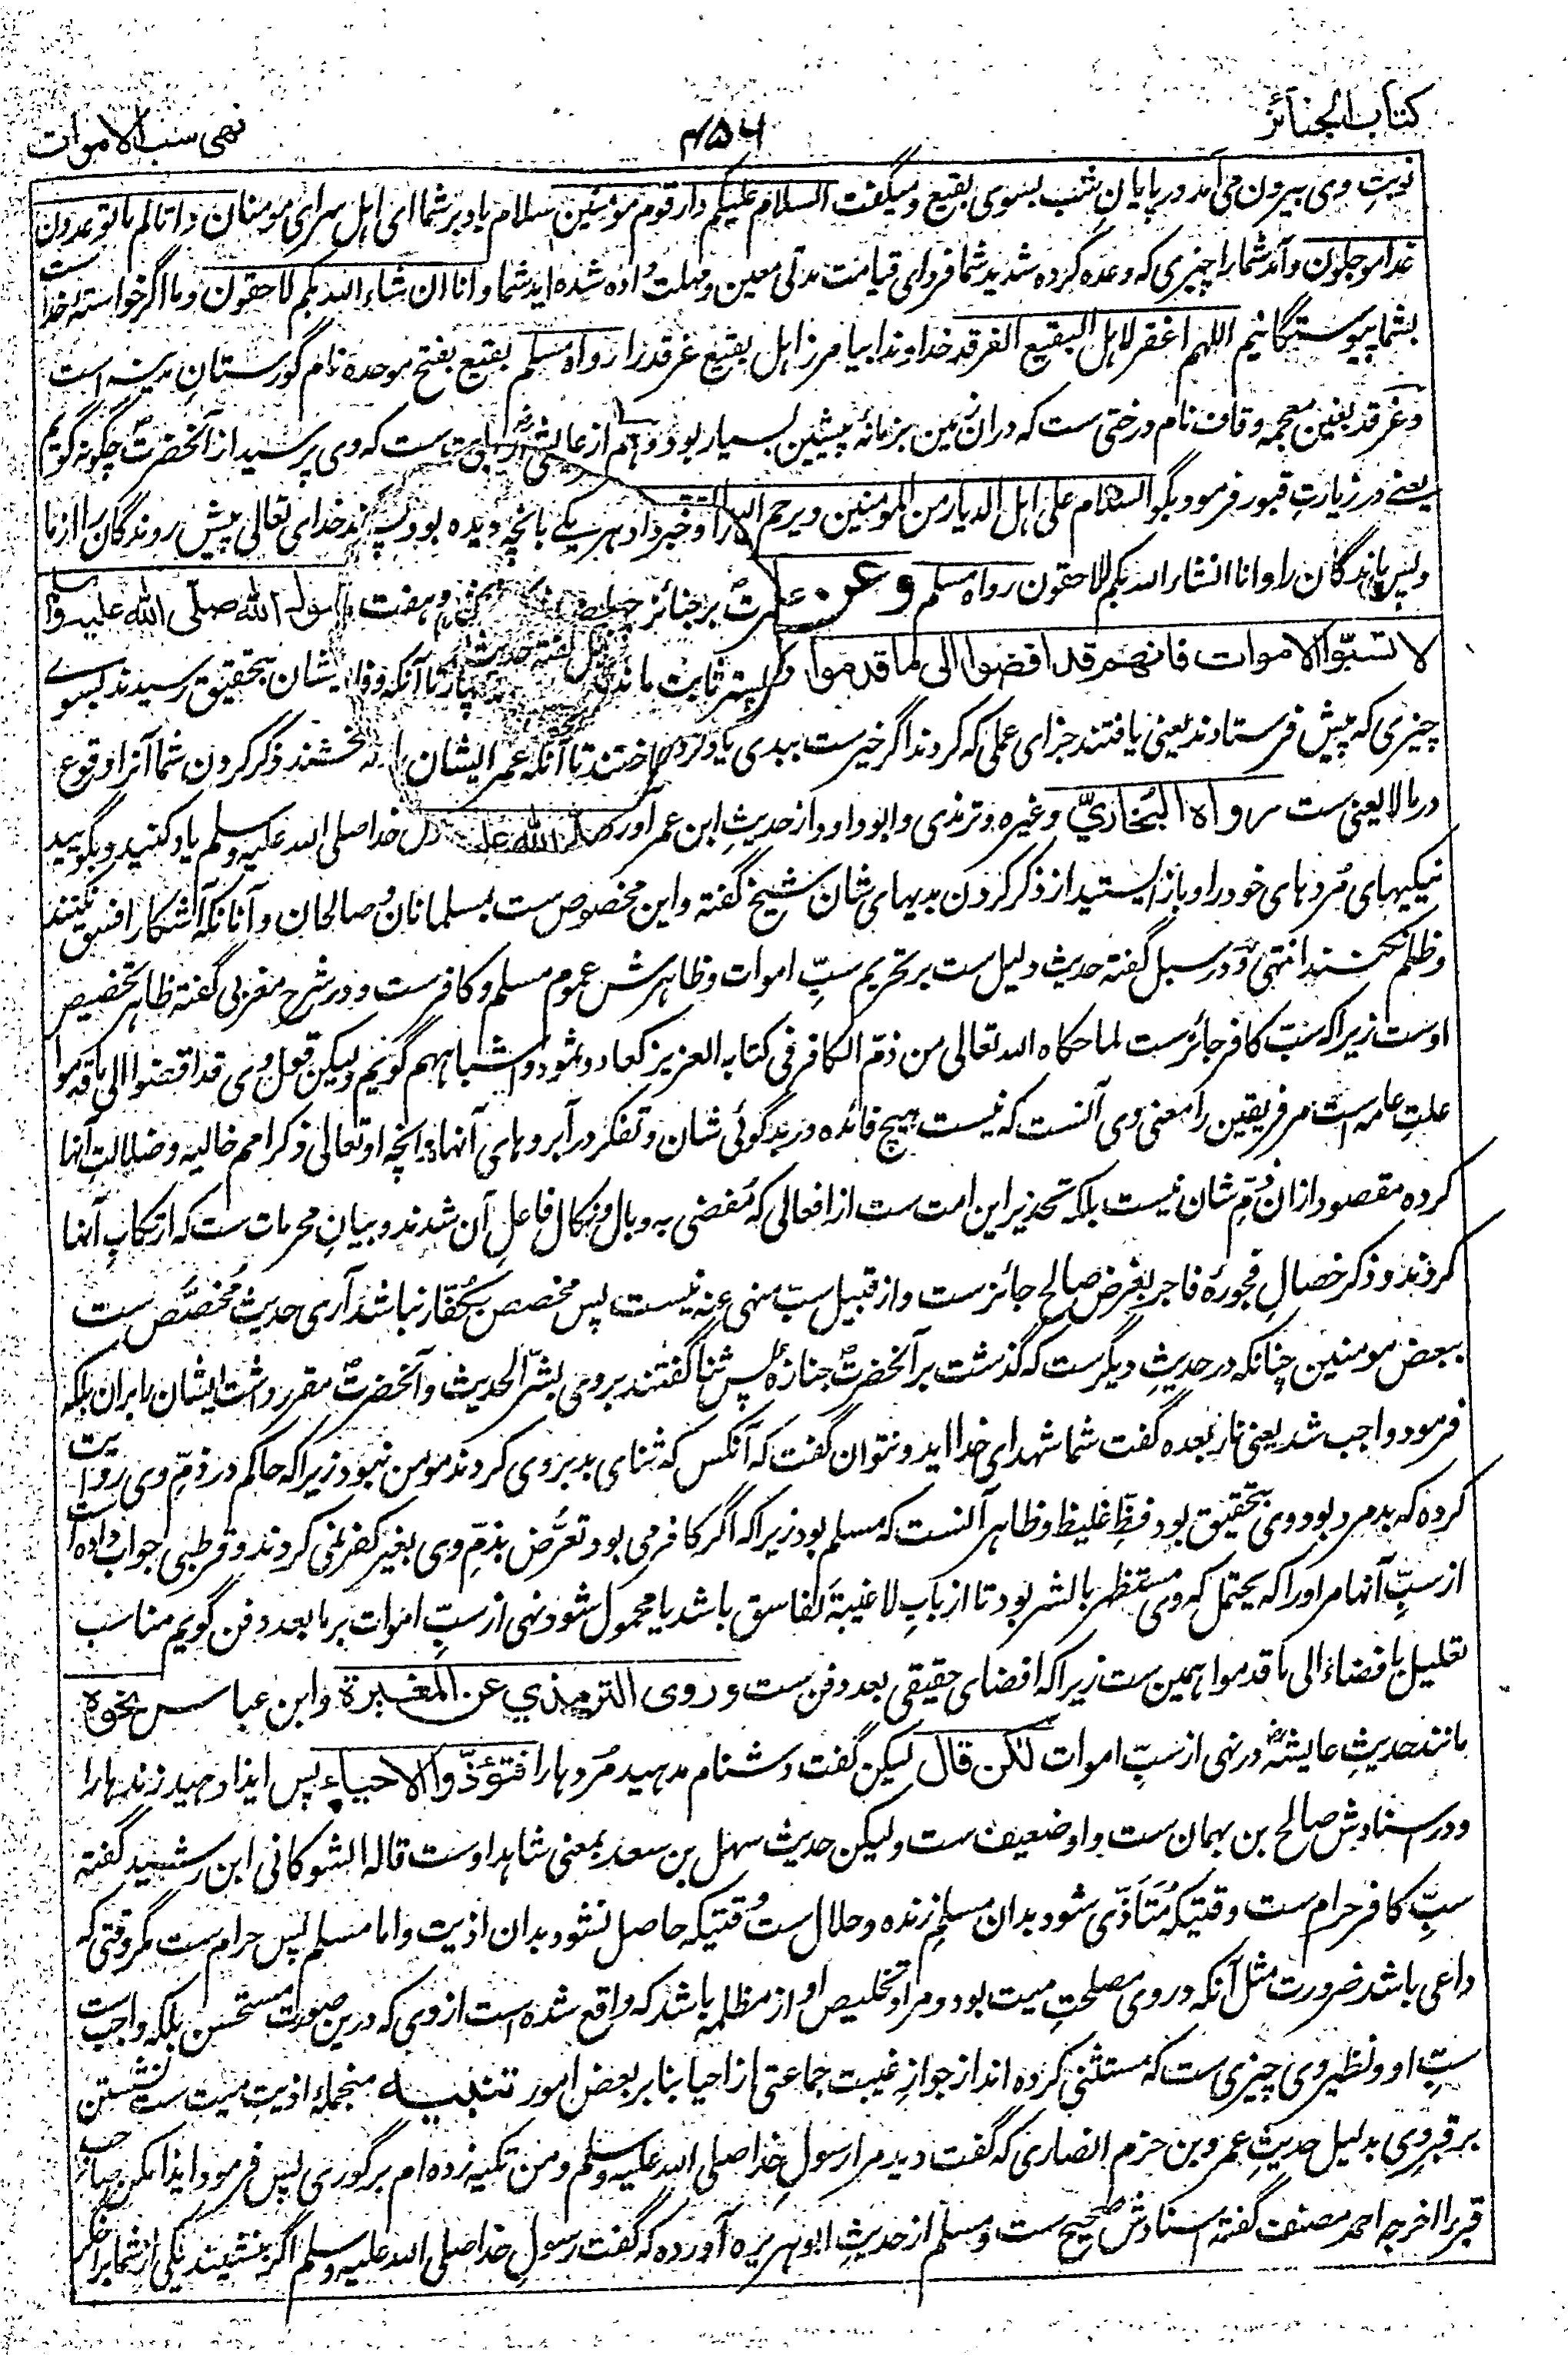 کتاب الجنائز
۴۵۶
نهی سب الاموات
نوبتِ وی بیرون می آمد در پایانِ شب بسوی بقیع و میگفت السلام علیکم دار قوم مؤمنین سلام باد بر شما ای اہل سرای مومنان و اتاکم ما توعدون
غدا موجلون و آمد شما را چیزی که وعده کرده شدید شما فردای قیامت مدتی معین و مهلت داده شده اید شما و انا ان شاء الله بکم لاحقون و ما اگر خواستهٔ خدا ست
بشما پیوستگانیم اللهم اغفر لاہل البقیع الغرقد خداوندا بیامرز اہل بقیع غرقد را رواه مسلم بقیع بفتح موحده نام گورستانِ مدینہ است
و غرقد بغین معجمه و قاف نام درختی ست که دران زمین بزمانهٔ پیشین بسیار بود و ہم از عایشہ روایت ست که وی پرسید از آنحضرت چگونه گویم
یعنے در زیارتِ قبور فرمود بگو السلام علی اہل الدیار من المومنین و یرحم الله خدای تعالی پیش روندگان را از ما
و پس ماندگان را و انا انشاء الله بکم للاحقون رواه مسلم وعن رسول الله صلّی الله علیه و
لا تسبّوا الاموات فانهم قد افضوا الی ما قدموا ایشان بتحقیق رسیدند بسوے
چیزی که پیش فرستادند یعنی یافتند جزای عملی که کردند اگر خیرست ذکر کردن شما آنرا وقوع
در مالایعنی ست رواه البخاریّ و غیره و ترمذی و ابوداود از حدیثِ ابن عمر آورده خدا صلی الله علیه وسلم یاد کنید و بگویید
نیکیهای مُردهای خود را و باز ایستید از ذکر کردن بدیهای شان شیخ گفته و این مخصوص ست بمسلمانان و صالحان و آنانکه آشکارا فسق نکنند
و ظلم نکنند انتهی و در سبل گفته حدیث دلیل ست بر تحریم سبِّ اموات و ظاہرش عموم مسلم و کافرست و در شرح مغربی گفته ظاہر تخصیص
اوست زیرا که سبّ کافر جائزست لما حکاه الله تعالی من ذمّ الکافر فی کتابه العزیز کعاد و ثمود و اشباہہم گویم و لیکن قول وی قد افضوا الی ما قدموا
علتِ عامہ است مر فریقین را معنی وی آنست که نیست ہیچ فائده در بدگوئی شان و تفکر در آبروہای آنها و انچه او تعالی ذکر امم خالیه و ضلالتِ آنها
کرده مقصود ازان ذمّ شان نیست بلکه تحذیر این امت ست از افعالی که مُفضی به وبال و نکال فاعلِ آن شدند و بیانِ محرمات ست که ارتکابِ آنها
کردند و ذکر خصالِ فجورهٔ فاجر بغرض صالح جائزست و از قبیل سبّ منہی عنه نیست پس مخصص بکُفّار نباشد آری حدیث مُخصَّص ست
ببعض مومنین چنانکه در حدیثِ دیگرست که گذشت بر آنحضرت جنازهٔ پس ثنا گفتند بروی بشرّ الحدیث و آنحضرت مقرر داشت ایشان را بران بلکه
فرمود واجب شد یعنی نار بعده گفت شما شهدای خدا اید و نتوان گفت که آنکس که ثنای بد بروی کردند مومن نبود زیرا که حاکم در ذمّ وی روایت
کرده که بد مرد بود و وی بتحقیق بود فظّ غلیظ و ظاہر آنست که مسلم بود زیرا که اگر کافر می بود تعرُّض بذمّ وی بغیر کفر نمی کردند و قرطبی جواب داده است
از سبِّ آنها مر او را که یحتمل که وی مستظهر بالشر بود تا از بابِ لا غیبةَ لفاسق باشد یا محمول شود نہی از سبِّ اموات بر ما بعد دفن گویم مناسب
تعلیل بافضاء الی ما قدموا ہمین ست زیرا که افضای حقیقی بعد دفن ست و روی الترمذي عن المغیرة و ابن عباس نحوه
مانند حدیثِ عایشہ در نہی از سبِّ اموات لکن قال لیکن گفت دشنام مدہید مُردہا را فتؤذوا الاحیاء پس ایذا دہید زندہا را
و در اسنادش صالح بن بہمان ست و او ضعیف ست و لیکن حدیث سہل بن سعد بمعنی شاہد اوست قاله الشوکانی ابن رشید گفته
سبِّ کافر حرام ست وقتیکه مُتَأذّی شود بدان مسلمِ زنده و حلال ست وقتیکه حاصل نشود بدان اذیت و اما مسلم پس حرام ست مگر وقتی که
داعی باشد ضرورت مثل آنکه در وی مصلحتِ میت بود و مراد تخلیص او از مظلمه باشد که واقع شده است از وی که درین صورت مستحسن بلکه واجب است
سبِّ او و نظیر وی چیزی ست که مستثنی کرده اند از جوازِ غیبت جماعتی از احیا بنا بر بعض امور تنبیه منجملهٔ اذیتِ میت ست نشستن
بر قبر وی بدلیل حدیثِ عمرو بن حزم انصاری که گفت دید مرا رسولِ خدا صلی الله علیه وسلم و من تکیه زده ام بر گوری پس فرمود ایذا مکن صاحب
قبر را اخرجه احمد مصنف گفته اسنادش صحیح ست و مسلم از حدیثِ ابوہریره آورده که گفت رسولِ خدا صلی الله علیه وسلم اگر بنشیند یکی از شما بر اخگر